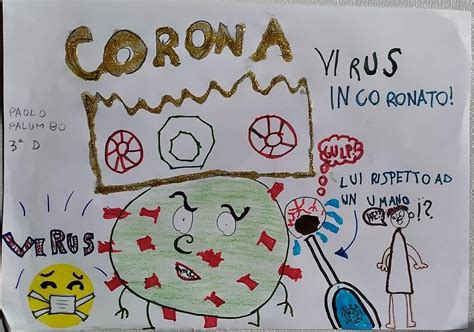 CORONA
VIRUS
INCORONATO!
PAOLO
PALUMBO
3ª D
GULP!
LUI RISPETTO AD
UN UMANO
!?
VIRUS